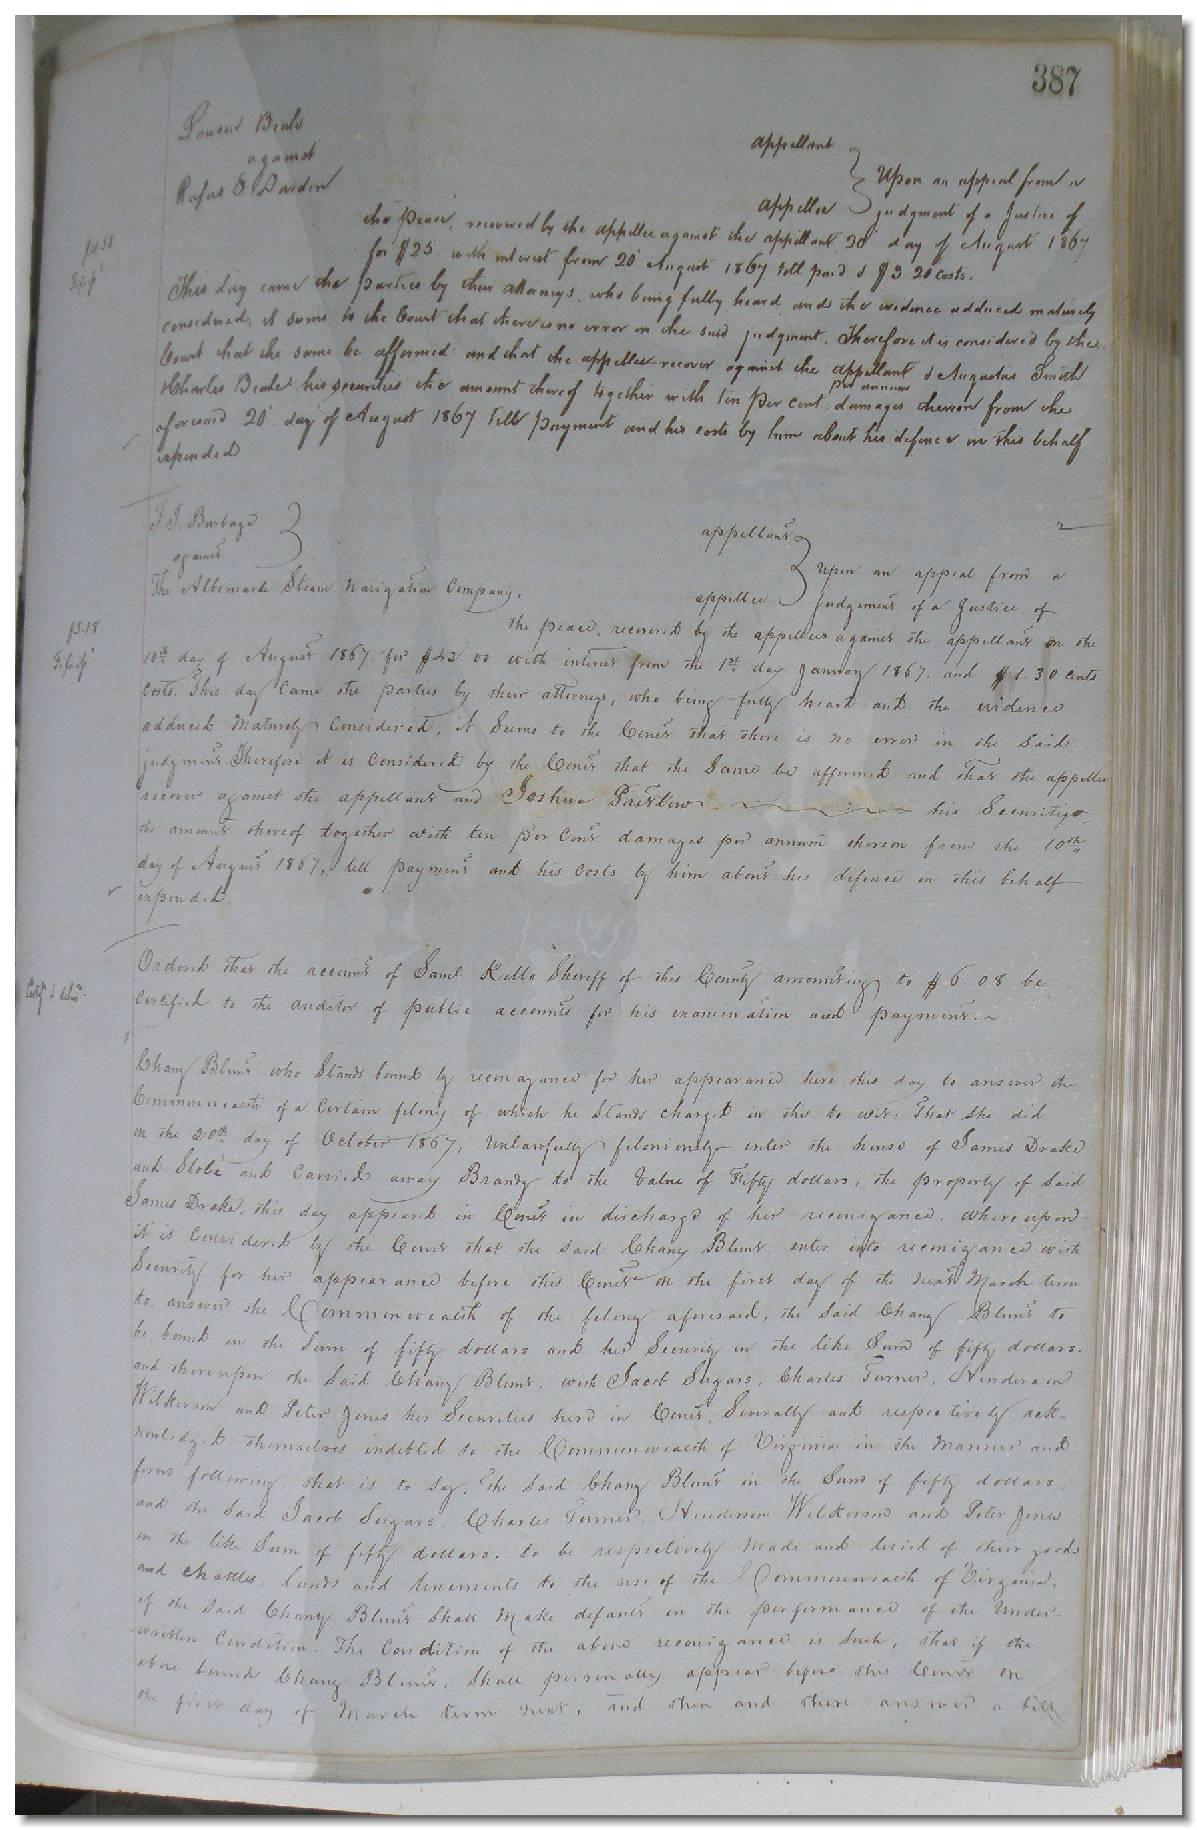 387
Beale
against
Rufus E Darden
appellant
appellee
Upon an appeal from a
judgment of a Justice of
the peace, recovered by the appellee against the appellant 20 day of August 1867
for $25 with interest from 20 August 1867 till paid & $3.20 costs.
This day came the parties by their attorneys, who being fully heard and the evidence adduced maturely
considered, it seems to the Court that there is no error in the said judgment. Therefore it is considered by the
Court that the same be affirmed and that the appellee recover against the appellant & Augustus Smith
Charles Beale his securities the amount thereof together with ten per cent per annum damages thereon from the
aforesaid 20 day of August 1867 till payment and his costs by him about his defence in this behalf
expended
Burbage
against
The Albemarle Steam Navigation Company.
appellant
appellee
Upon an appeal from a
Judgement of a Justice of
the peace, recovered by the appellee against the appellant on the
10th day of August 1867 for $42 00 with interest from the 1st day January 1867. and $1.30 cents
costs. This day came the parties by their attorneys, who being fully heard and the evidence
adduced maturely considered, it seems to the Court that there is no error in the said
judgment. Therefore it is considered by the Court that the same be affirmed and that the appellee
recover against the appellant and Joshua his Securities
the amount thereof together with ten per Cent damages per annum thereon from the 10th
day of August 1867, till payment and his costs by him about his defence in this behalf
expended.
Ordered that the account of Saml Kello Sheriff of this County amounting to $6.08 be
certified to the auditor of public accounts for his examination and payment.
Chany Blunt who stands bound by recognizance for her appearance here this day to answer the
Commonwealth of a certain felony of which he stands charged in this to wit: That she did
on the 20th day of October 1867, unlawfully feloniously enter the house of James Drake
and Stole and carried away Brandy to the value of Fifty dollars, the property of said
James Drake, this day appeared in Court in discharge of her recognizance. whereupon
it is considered by the Court that the said Chany Blunt enter into recognizance with
Security for her appearance before this Court on the first day of the next March term
to answer the Commonwealth of the felony aforesaid, the said Chany Blunt to
be bound in the Sum of fifty dollars and her Security in the like Sum of fifty dollars.
and thereupon the said Chany Blunt, with Jacob Sugars, Charles Turner, Henderson
Wilkerson and Peter Jones her Securities here in Court, Severally and respectively ack-
nowledged themselves indebted to the Commonwealth of Virginia in the manner and
form following that is to say, the said Chany Blunt in the Sum of fifty dollars
and the said Jacob Sugars, Charles Turner, Henderson Wilkerson and Peter Jones
in the like Sum of fifty dollars. to be respectively made and levied of their goods
and chattles, lands and tenements to the use of the Commonwealth of Virginia.
if the said Chany Blunt Shall make default in the performance of the under-
written Condition. The Condition of the above recognizance is such, that if the
above bound Chany Blunt, Shall personally appear before this Court on
the first day of March term next, and then and there answer a bill